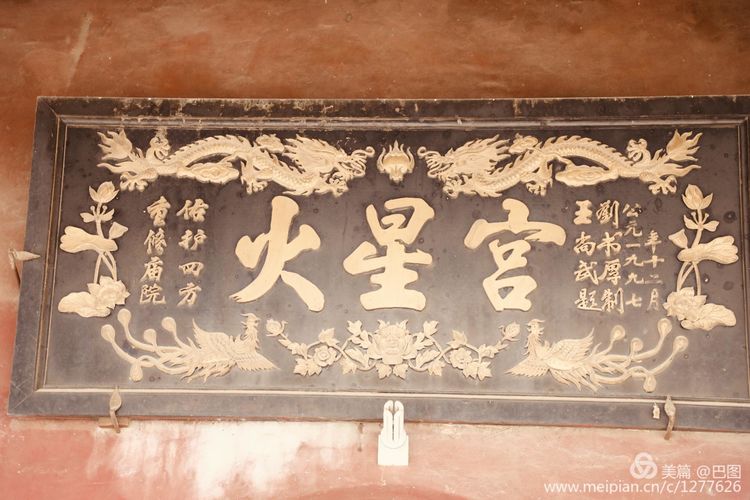 重修庙院
佑护四方
火星宫
王尚武题
劉书厚制
公元一九九七
年十二月
美篇 @巴图
www.meipian.cn/c/1277626